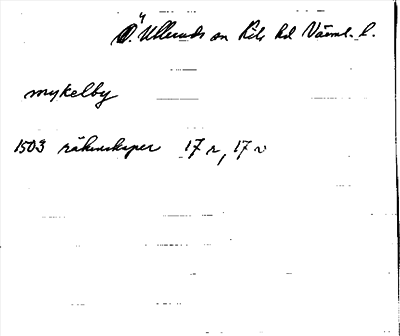 Ö. Ulleruds sn Kils hd Värml. l.
mykelby
1503 räkenskaper 17 r, 17 v